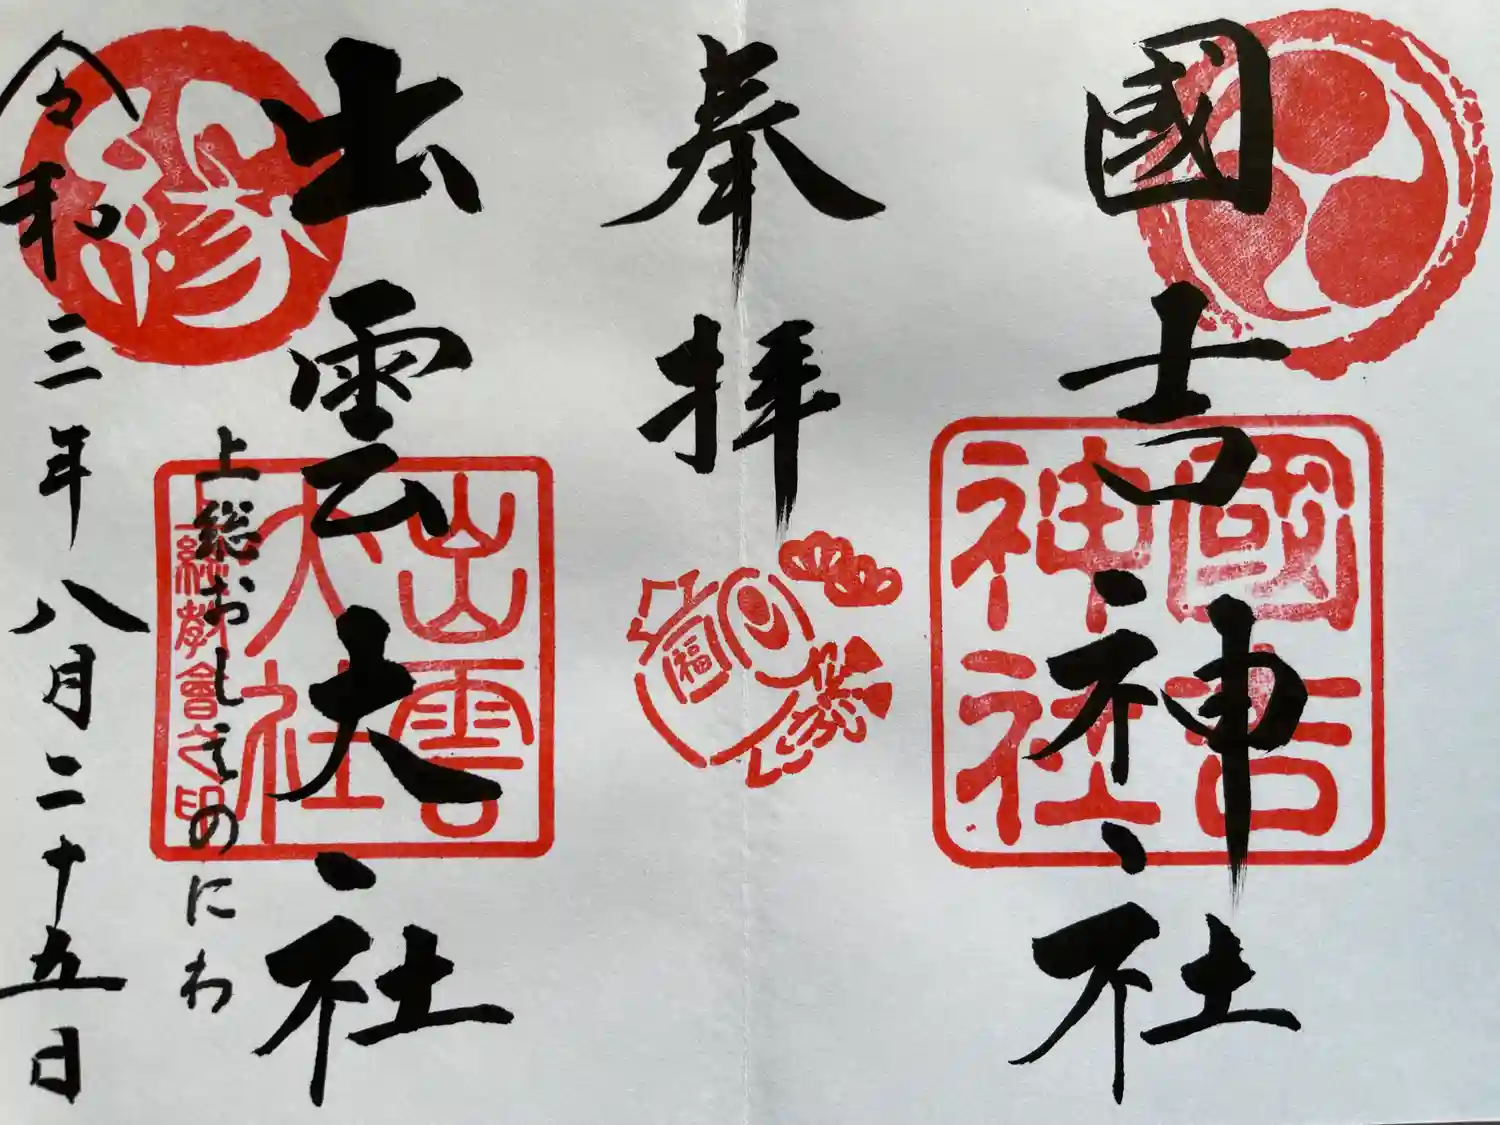 國吉神社
國吉
神社
奉拝
福
出雲大社
出雲
大社
上総教會之印
上総おしきのにわ
縁
令和三年八月二十五日